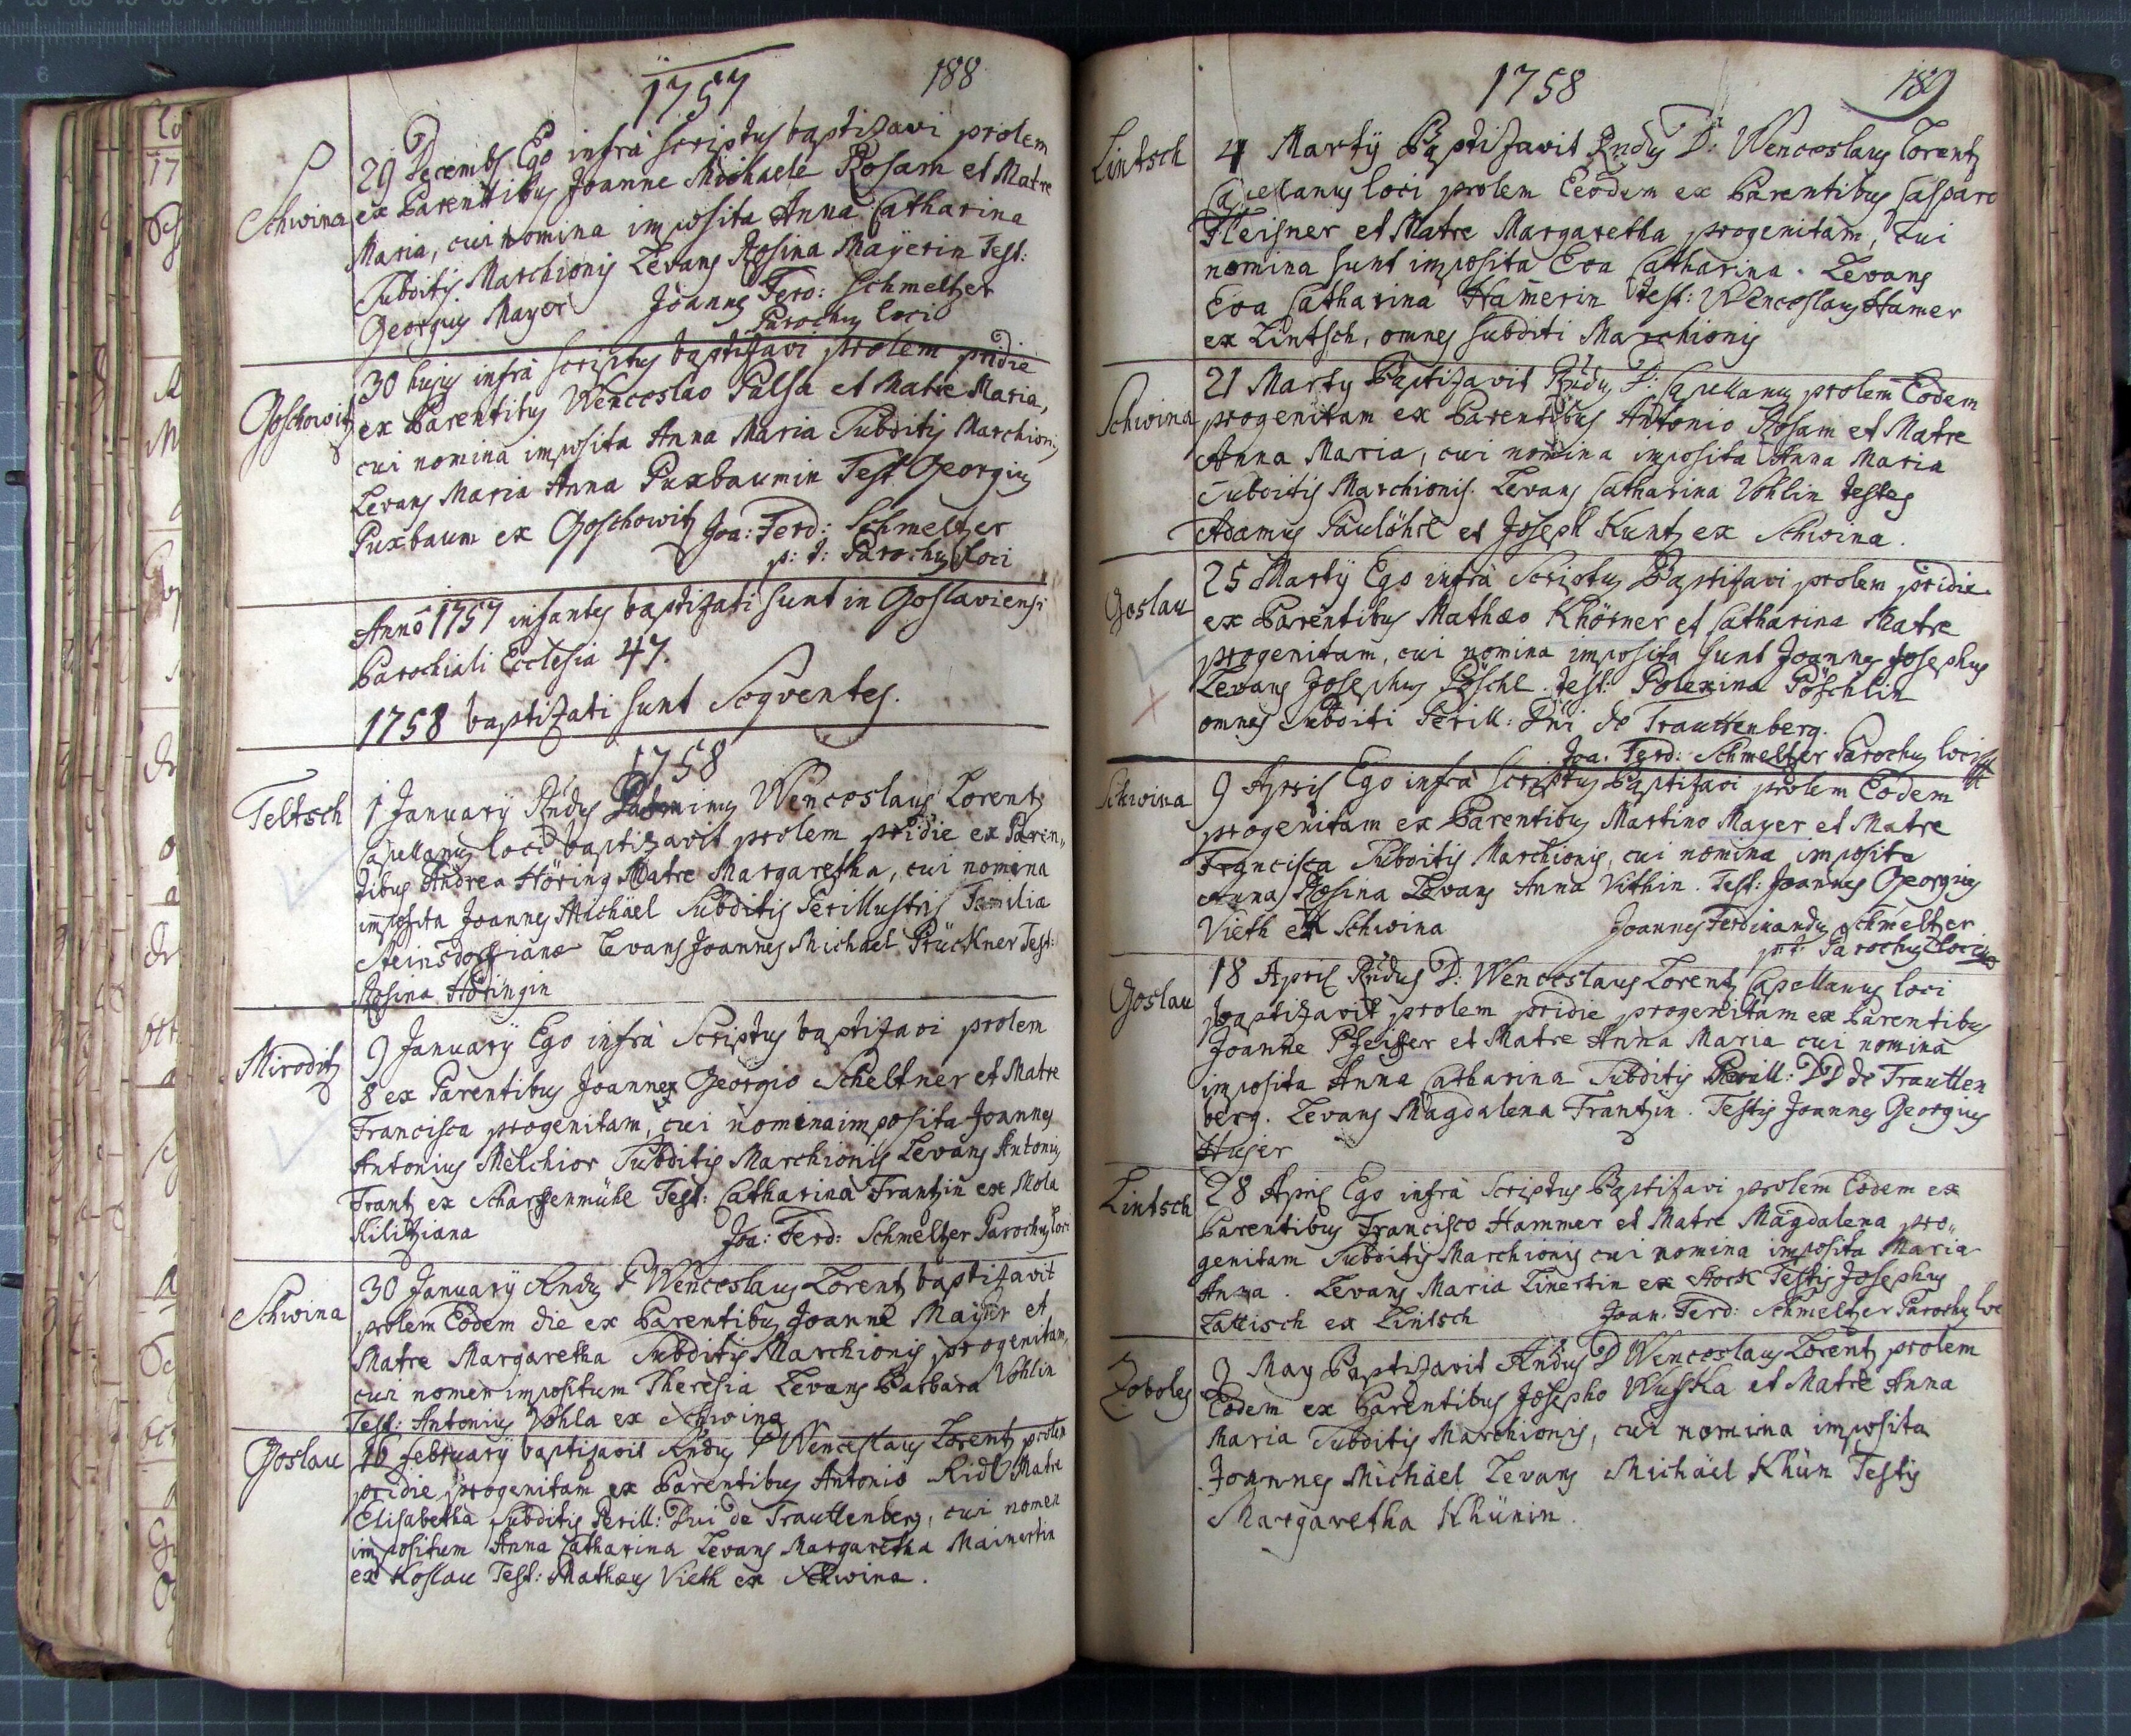 1757
188
Schwina
29 Decembs Ego infrà scriptus baptizavi prolem
ex Parentibus Joanne Michaele Rosam et Matre
Maria, cui nomina imposita Anna Catharina
Subditis Marchionis Levans Rosina Mayerin Test:
Georgius Mayer Joannes Ferd: Schmeltzer
Parochus loci
Goschowitz
30 hujus infrà scriptus baptizavi prolem pridie
ex Parentibus Wenceslao Pulsa et Matre Maria,
cui nomina imposita Anna Maria Subditis Marchionis
Levans Maria Anna Puxbaumin Test Georgius
Puxbaum ex Goschowitz Joa: Ferd: Schmeltzer
p: t: Parochus loci
Annô 1757 infantes baptizati sunt in Goslaviensi
Parochiali Ecclesia 47.
1758 baptizati sunt Seqventes.
1758
Teltsch
1 January Rndus Wenceslaus Lorentz
Capellanus loci baptizavit prolem pridie ex Paren„
tibus Andrea Höring Matre Margaretha, cui nomina
imposita Joannes Michäel Subditis Perillustris Familiæ
Steinsdorffianæ Levans Joannes Michael Prückner Test:
Rosina Höringin
Miroditz
9 January Ego infrà Scriptus baptizavi prolem
8 ex Parentibus Joanne Georgio Scheltner et Matre
Francisca progenitam, cui nomina imposita Joannes
Antonius Melchior Subditis Marchionis Levans Antonius
Frantz ex Scharffenmühl Test: Catharina Frantzin ex Mola
Kilitziana Joa: Ferd: Schmeltzer Parochus loci
Schwina
30 January Rndus P Wenceslaus Lorentz baptizavit
prolem Eodem die ex Parentibus Joanne Mayer et
Matre Margaretha Subditis Marchionis progenitam,
cui nomen impositum Theresia Levans Barbara Vohlin
Test: Antonius Vohla ex Schwina
Goslau
16 February baptizavit Rndus P Wenceslaus Lorentz prolem
pridie progenitam ex Parentibus Antonio Ridl Matre
Elisabetha Subditis Perill: Dni de Trauttenberg, cui nomen
impositum Anna Catharina Levans Margaretha Mainertin
ex Koslau Test: Mathæus Vieth ex Schwina.
1758
189
Lintsch
4 Marty Baptizavit Rndus D: Wenceslaus Lorentz
Capellanus loci prolem Eeodem ex Parentibus Casparo
Fleisner et Matre Margaretha progenitam, Cui
nomina sunt imposita Eva Catharina. Levans
Eva Catharina Hamerin test: Wenceslaus Hamer
ex Lintsch, omnes subditi Marchionis
Schwina
21 Marty Baptizavit Rndus D: Capellanus prolem Eodem
progenitam ex Parentibus Antonio Rosam et Matre
Anna Maria, cui nomina imposita Anna Maria
Subditis Marchionis. Levans Catharina Vohlin testes
Adamus Paulöhrl et Joseph Kuntz ex Schwina.
Goslau
25 Marty Ego infrà Scriptus Baptizavi prolem pridie
ex Parentibus Mathæo Khörner et Catharina Matre
progenitam, cui nomina imposita sunt Joannes Josephus
Levans Josephus Pöschl. test: Polexina Pöschlin
omnes Subditi Perill: Dni de Trauttenberg.
Joa. Ferd: Schmeltzer Parochus loci
Schwina
9 Apris Ego infrà scriptus Baptizavi prolem Eodem
progenitam ex Parentibus Martino Mayer et Matre
Francisca Subditis Marchionis, cui nomina imposita
Anna Rosina Levans Anna Vithin. Test: Joannes Georgius
Vieth ex Schwina Joannes Ferdinandus Schmeltzer
pt: Parochus loci
Goslau
18 April Rndus D: Wenceslaus Lorentz Capellanus loci
baptizavit prolem pridie progenitam ex Parentibus
Joanne Pfeiffer et Matre Anna Maria cui nomina
imposita Anna Catharina Subditis Perill: DD de Trautten
berg. Levans Magdalena Frantzin. Testis Joannes Georgius
Hujer
Lintsch
28 April Ego infrà Scriptus Baptizavi prolem Eodem ex
Parentibus Francisco Hammer et Matre Magdalena pro„
genitam Subditis Marchionis cui nomina imposita Maria
Anna. Levans Maria Linertin ex Stock Testis Josephus
Lattisch ex Lintsch Joan. Ferd: Schmeltzer Parochus loc
Zoboles
9 May Baptizavit Rndus D Wenceslaus Lorentz prolem
Eodem ex Parentibus Josepho Wuska et Matre Anna
Maria Subditis Marchionis, cui nomina imposita
Joannes Michäel Levans Michäel Khün Testis
Margaretha Khünin.